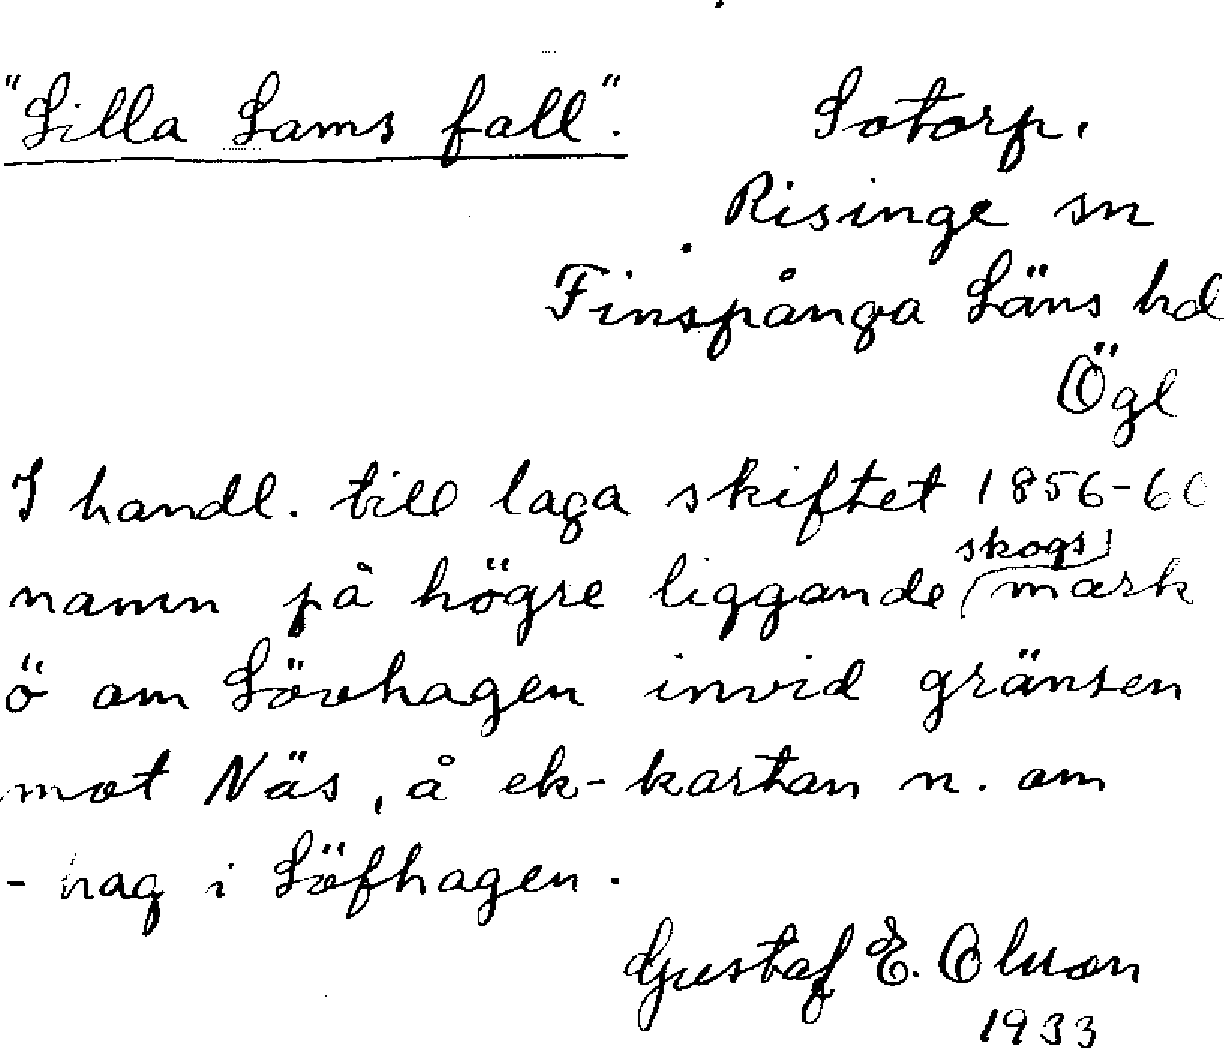 "Lilla Lams fall". Sotorp.
Risinge sn
Finspånga Läns hd
Ögl
I handl. till laga skiftet 1856-60
namn på högre liggande skogsmark
ö om Lövhagen invid gränsen
mot Näs, å ek-kartan n. om
- hag i Löfhagen.
Gustaf E. Olsson
1933